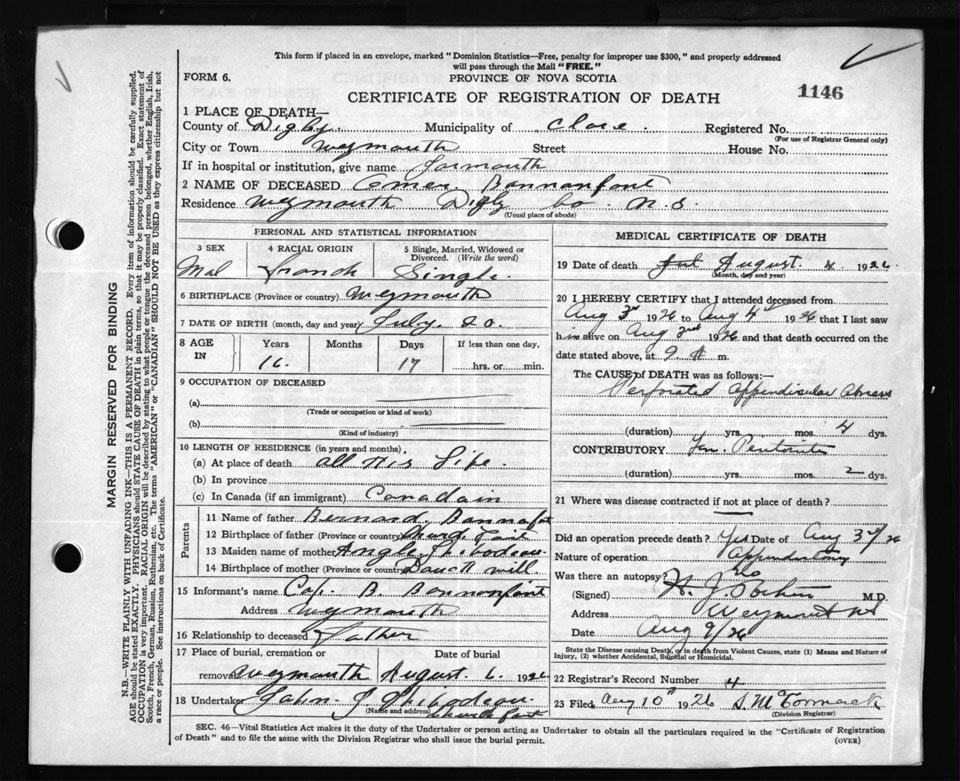 This form if placed in an envelope, marked "Dominion Statistics—Free, penalty for improper use $300," and properly addressed
will pass through the Mail "FREE."
FORM 6.
PROVINCE OF NOVA SCOTIA
CERTIFICATE OF REGISTRATION OF DEATH
1146
1 PLACE OF DEATH—
County of Digby Municipality of Clare Registered No.
(For use of Registrar General only)
City or Town Weymouth Street House No.
If in hospital or institution, give name
2 NAME OF DECEASED
Residence Weymouth Digby Co. N.S.
(Usual place of abode)
PERSONAL AND STATISTICAL INFORMATION
3 SEX
4 RACIAL ORIGIN
5 Single, Married, Widowed or Divorced. (Write the word)
Mal
Single
6 BIRTHPLACE (Province or country) Weymouth
7 DATE OF BIRTH (month, day and year) July. 20.
8 AGE IN
Years Months Days If less than one day,
16. 17 hrs. or min.
9 OCCUPATION OF DECEASED
(a)
(Trade or occupation or kind of work)
(b)
(Kind of industry)
10 LENGTH OF RESIDENCE (in years and months).
(a) At place of death all His Life.
(b) In province
(c) In Canada (if an immigrant) Canadain
Parents
11 Name of father Bernard
12 Birthplace of father (Province or country)
13 Maiden name of mother Thibodeau
14 Birthplace of mother (Province or country)
15 Informant's name Cap. B.
Address Weymouth
16 Relationship to deceased Father
17 Place of burial, cremation or removal Date of burial
Weymouth August 6 1926
18 Undertaker John J Thibodeau
(Name and address)
MEDICAL CERTIFICATE OF DEATH
19 Date of death August 4 1926
(Month, day and year)
20 I HEREBY CERTIFY that I attended deceased from
Aug 3 1926 to Aug 4 1926 that I last saw
him alive on Aug 1926 and that death occurred on the
date stated above, at 9 A m.
The CAUSE of DEATH was as follows:—
Perforated Appendicular Abscess
(duration) yrs. mos. 4 dys.
CONTRIBUTORY Gen. Peritonitis
(duration) yrs. mos. 2 dys.
21 Where was disease contracted if not at place of death?
Did an operation precede death? Yes Date of Aug 3rd/26
Nature of operation
Was there an autopsy? No
(Signed) M.D.
Address Weymouth NS
Date Aug 9/26
State the Disease causing Death, or in death from Violent Causes, state (1) Means and Nature of
Injury, (2) whether Accidental, Suicidal or Homicidal.
22 Registrar's Record Number 4
23 Filed Aug 10th 1926 S. McCormack
(Division Registrar)
SEC. 46—Vital Statistics Act makes it the duty of the Undertaker or person acting as Undertaker to obtain all the particulars required in the "Certificate of Registration
of Death" and to file the same with the Division Registrar who shall issue the burial permit.
(OVER)
MARGIN RESERVED FOR BINDING
N.B.—WRITE PLAINLY WITH UNFADING INK—THIS IS A PERMANENT RECORD. Every item of information should be carefully supplied.
AGE should be stated EXACTLY. PHYSICIANS should STATE CAUSE OF DEATH in plain terms, so that it may be properly classified. Exact statement of
OCCUPATION is very important. RACIAL ORIGIN will be described by stating to what people or tongue the deceased person belonged, whether English, Irish,
Scotch, French, German, Russian, Ruthenian, etc. The terms "AMERICAN" or "CANADIAN" SHOULD NOT BE USED as they express citizenship but not
a race or people. See instructions on back of Certificate.